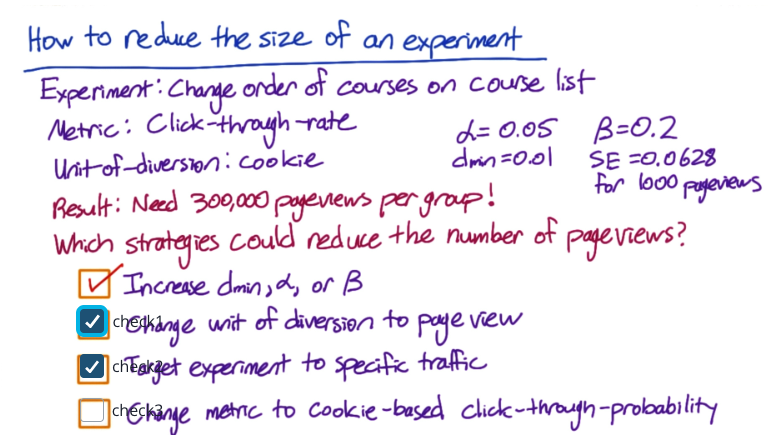 How to reduce the size of an experiment
Experiment: Change order of courses on course list
Metric: Click-through-rate
Unit-of-diversion: cookie
α = 0.05 β=0.2
dmin=0.01 SE =0.0628
for 1000 pageviews
Result: Need 300,000 pageviews per group!
Which strategies could reduce the number of pageviews?
Increase dmin, α, or β
check1 Change unit of diversion to page view
check2 Target experiment to specific traffic
check3 Change metric to cookie-based click-through-probability